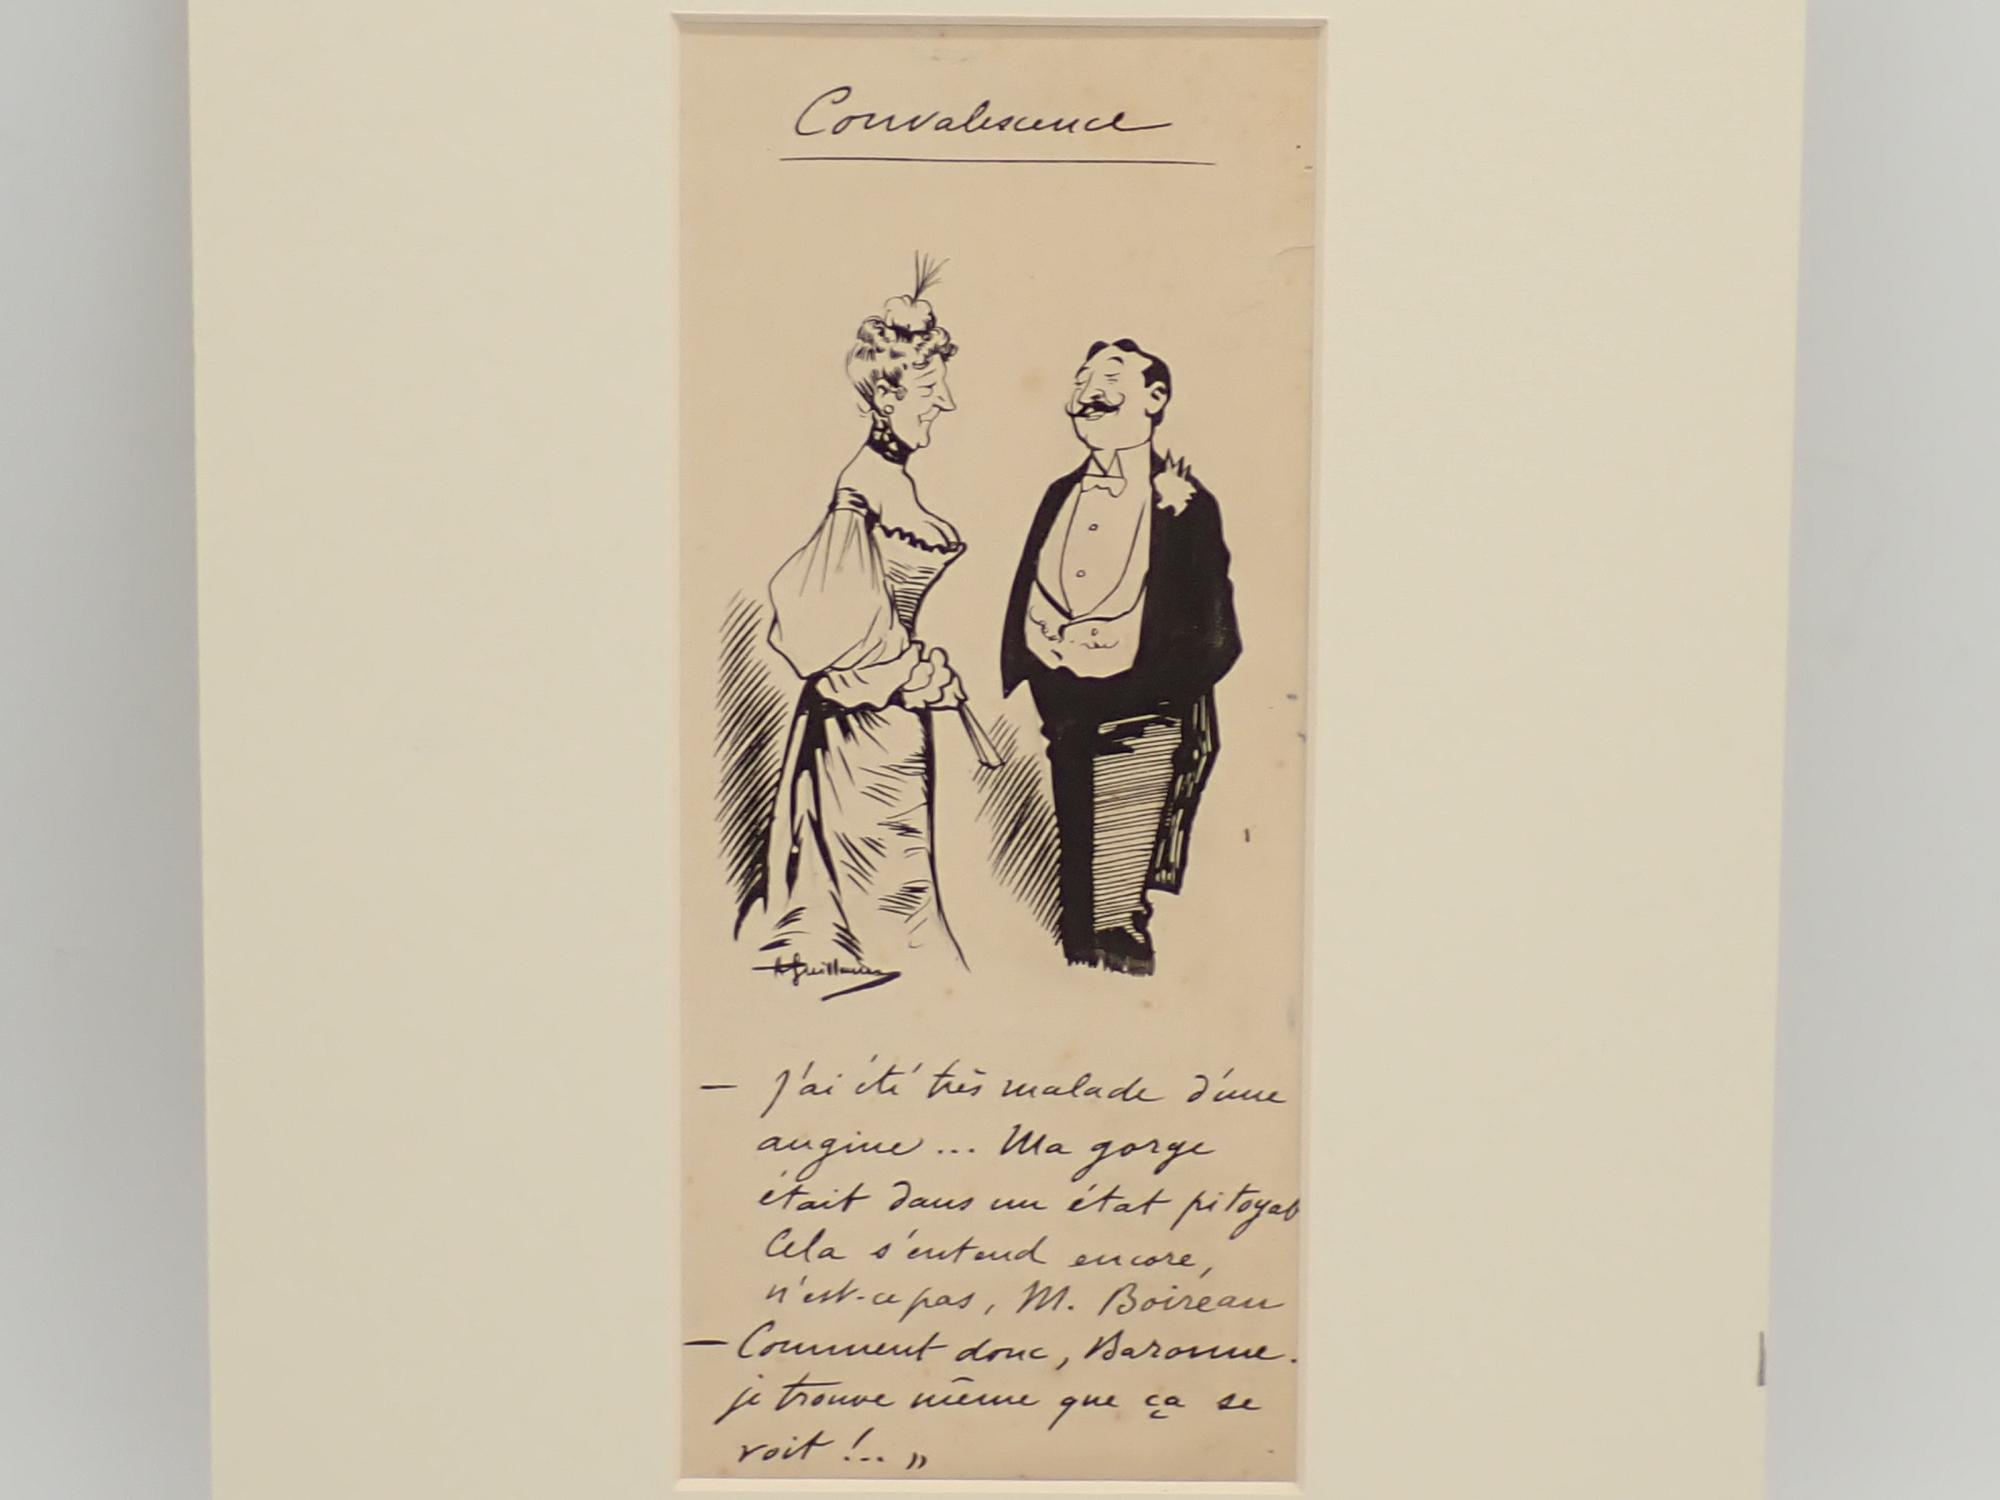 Convalescence
A Guillaume
— J'ai été très malade d'une
angine... Ma gorge
était dans un état pitoyab
Cela s'entend encore,
n'est-ce pas, M. Boireau
— Comment donc, Baronne.
je trouve même que ça se
voit !.. »